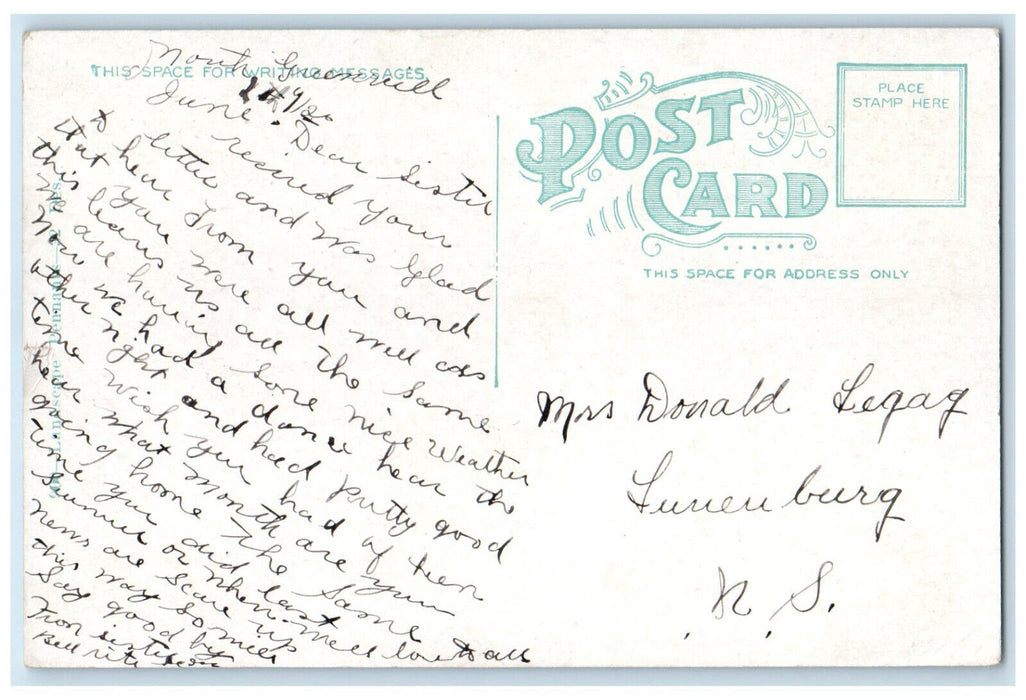 THIS SPACE FOR WRITING MESSAGES.
North Greenvill
June 20th 9/20
Dear Sister
recived your
letter and was glad
to hear from you and
that you were all well as
this leavs us all the same
we are having some nice weather
now we had a dance hear the
other night and had putty good
time wish you had of been
hear what month are you
going home the same
time you did last
summer or when well
news are scarce up
this way so well love to all
say good by
from sister
Bell rite soon
POST CARD
PLACE
STAMP HERE
THIS SPACE FOR ADDRESS ONLY
Mrs Donald Legag
Lunenburg
N. S.